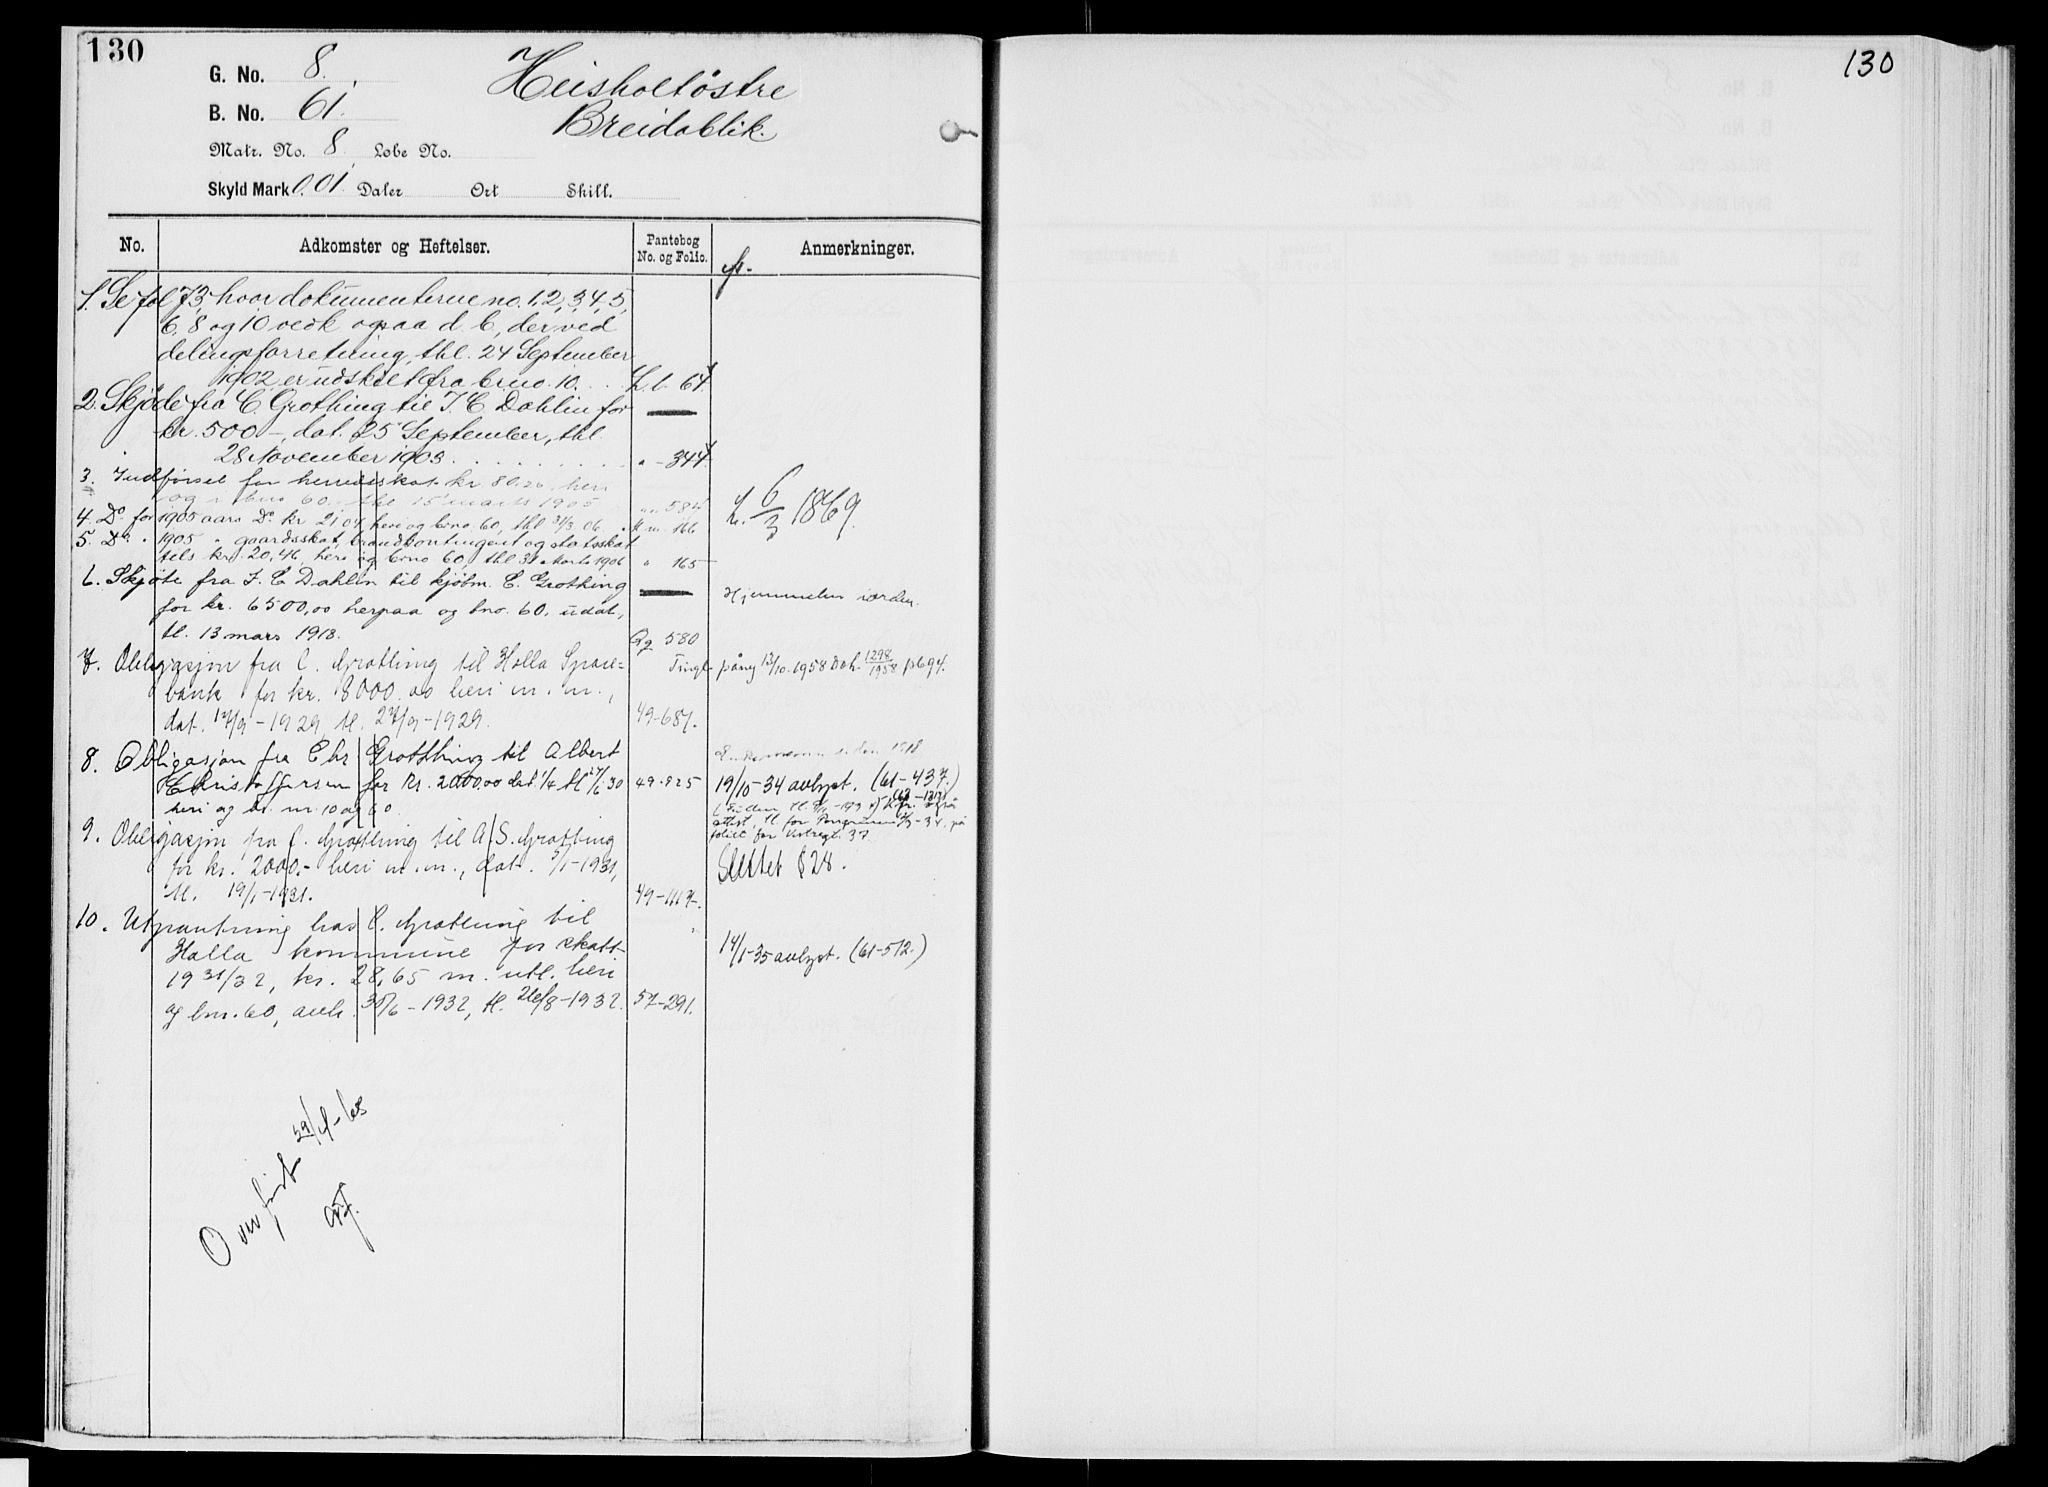 130
G. No. 8.
B. No. 61.
Matr. No. 8. Løbe No.
Skyld Mark 0.01 Daler Ort Skill.
Heisholtöstre
Breidablik.
No. Adkomster og Heftelser. Pantebog No. og Folio. Anmerkninger.
1. Se fol 73, hvor dokumenterne no. 1, 2, 3, 4, 5,
6, 8 og 10 vedk ogsaa d. b, der ved
delingsforretning, thl. 24 September
1902 er udskilt fra brno. 10. . . 64
2. Skjøde fra C. Grothing til J. C. Dahlin for
kr. 500 -, dat. 25 September, thl.
28 November 1903 . . . " - 344
3. Indførsel for herredsskat kr 80.20 heri
og i bno 60, thl 15 marts 1905 584
4. Do for 1905 aars Do kr 21,04 heri og brno. 60, thl 31/3 06 166
5. Do " 1905 " gaardsskat, brandkontingent og statsskat
tils kr. 20,46, heri og brno 60, thl 31 Marts 1906 " 165
L. 6/3 1869
6. Skjøte fra J. C Dahlin til kjøbm. C. Grothing
for kr. 6500,00 herpaa og bno. 60, udat,
tl. 13 mars 1918. 580
Hjemmelen iorden.
7. Obligasjon fra C. Grothing til Holla Spare=
bank for kr. 8000.00 heri m. m.,
dat. 17/9 - 1929, tl. 27/9 - 1929. 49-687.
Tingl. påny 13/10. 1958 Dok. 1298/1958
8. Obligasjon fra Chr Grothing til Albert
Kristoffersen for kr. 2000,00 dat. 1/6 tl 27/6 30 49-825
heri og br. nr. 10 og 60
siden 1918
19/10-34 avlyst. (61-437.)
9. Obligasjon fra C. Grothing til A/S. Grothing
for kr. 2000.- heri m. m., dat. 5/1-1931,
tl. 19/1-1931. 49-1117.
Slettet § 28.
10. Utpantning hos C. Grothing til
Holla kommune for skatt
1931/32, kr. 28,65 m. utl. heri
og bnr. 60, avh. 30/6 - 1932, tl. 26/8-1932. 57-291.
14/1-35 avlyst. (61-512.)
Overført 29/4-68
130